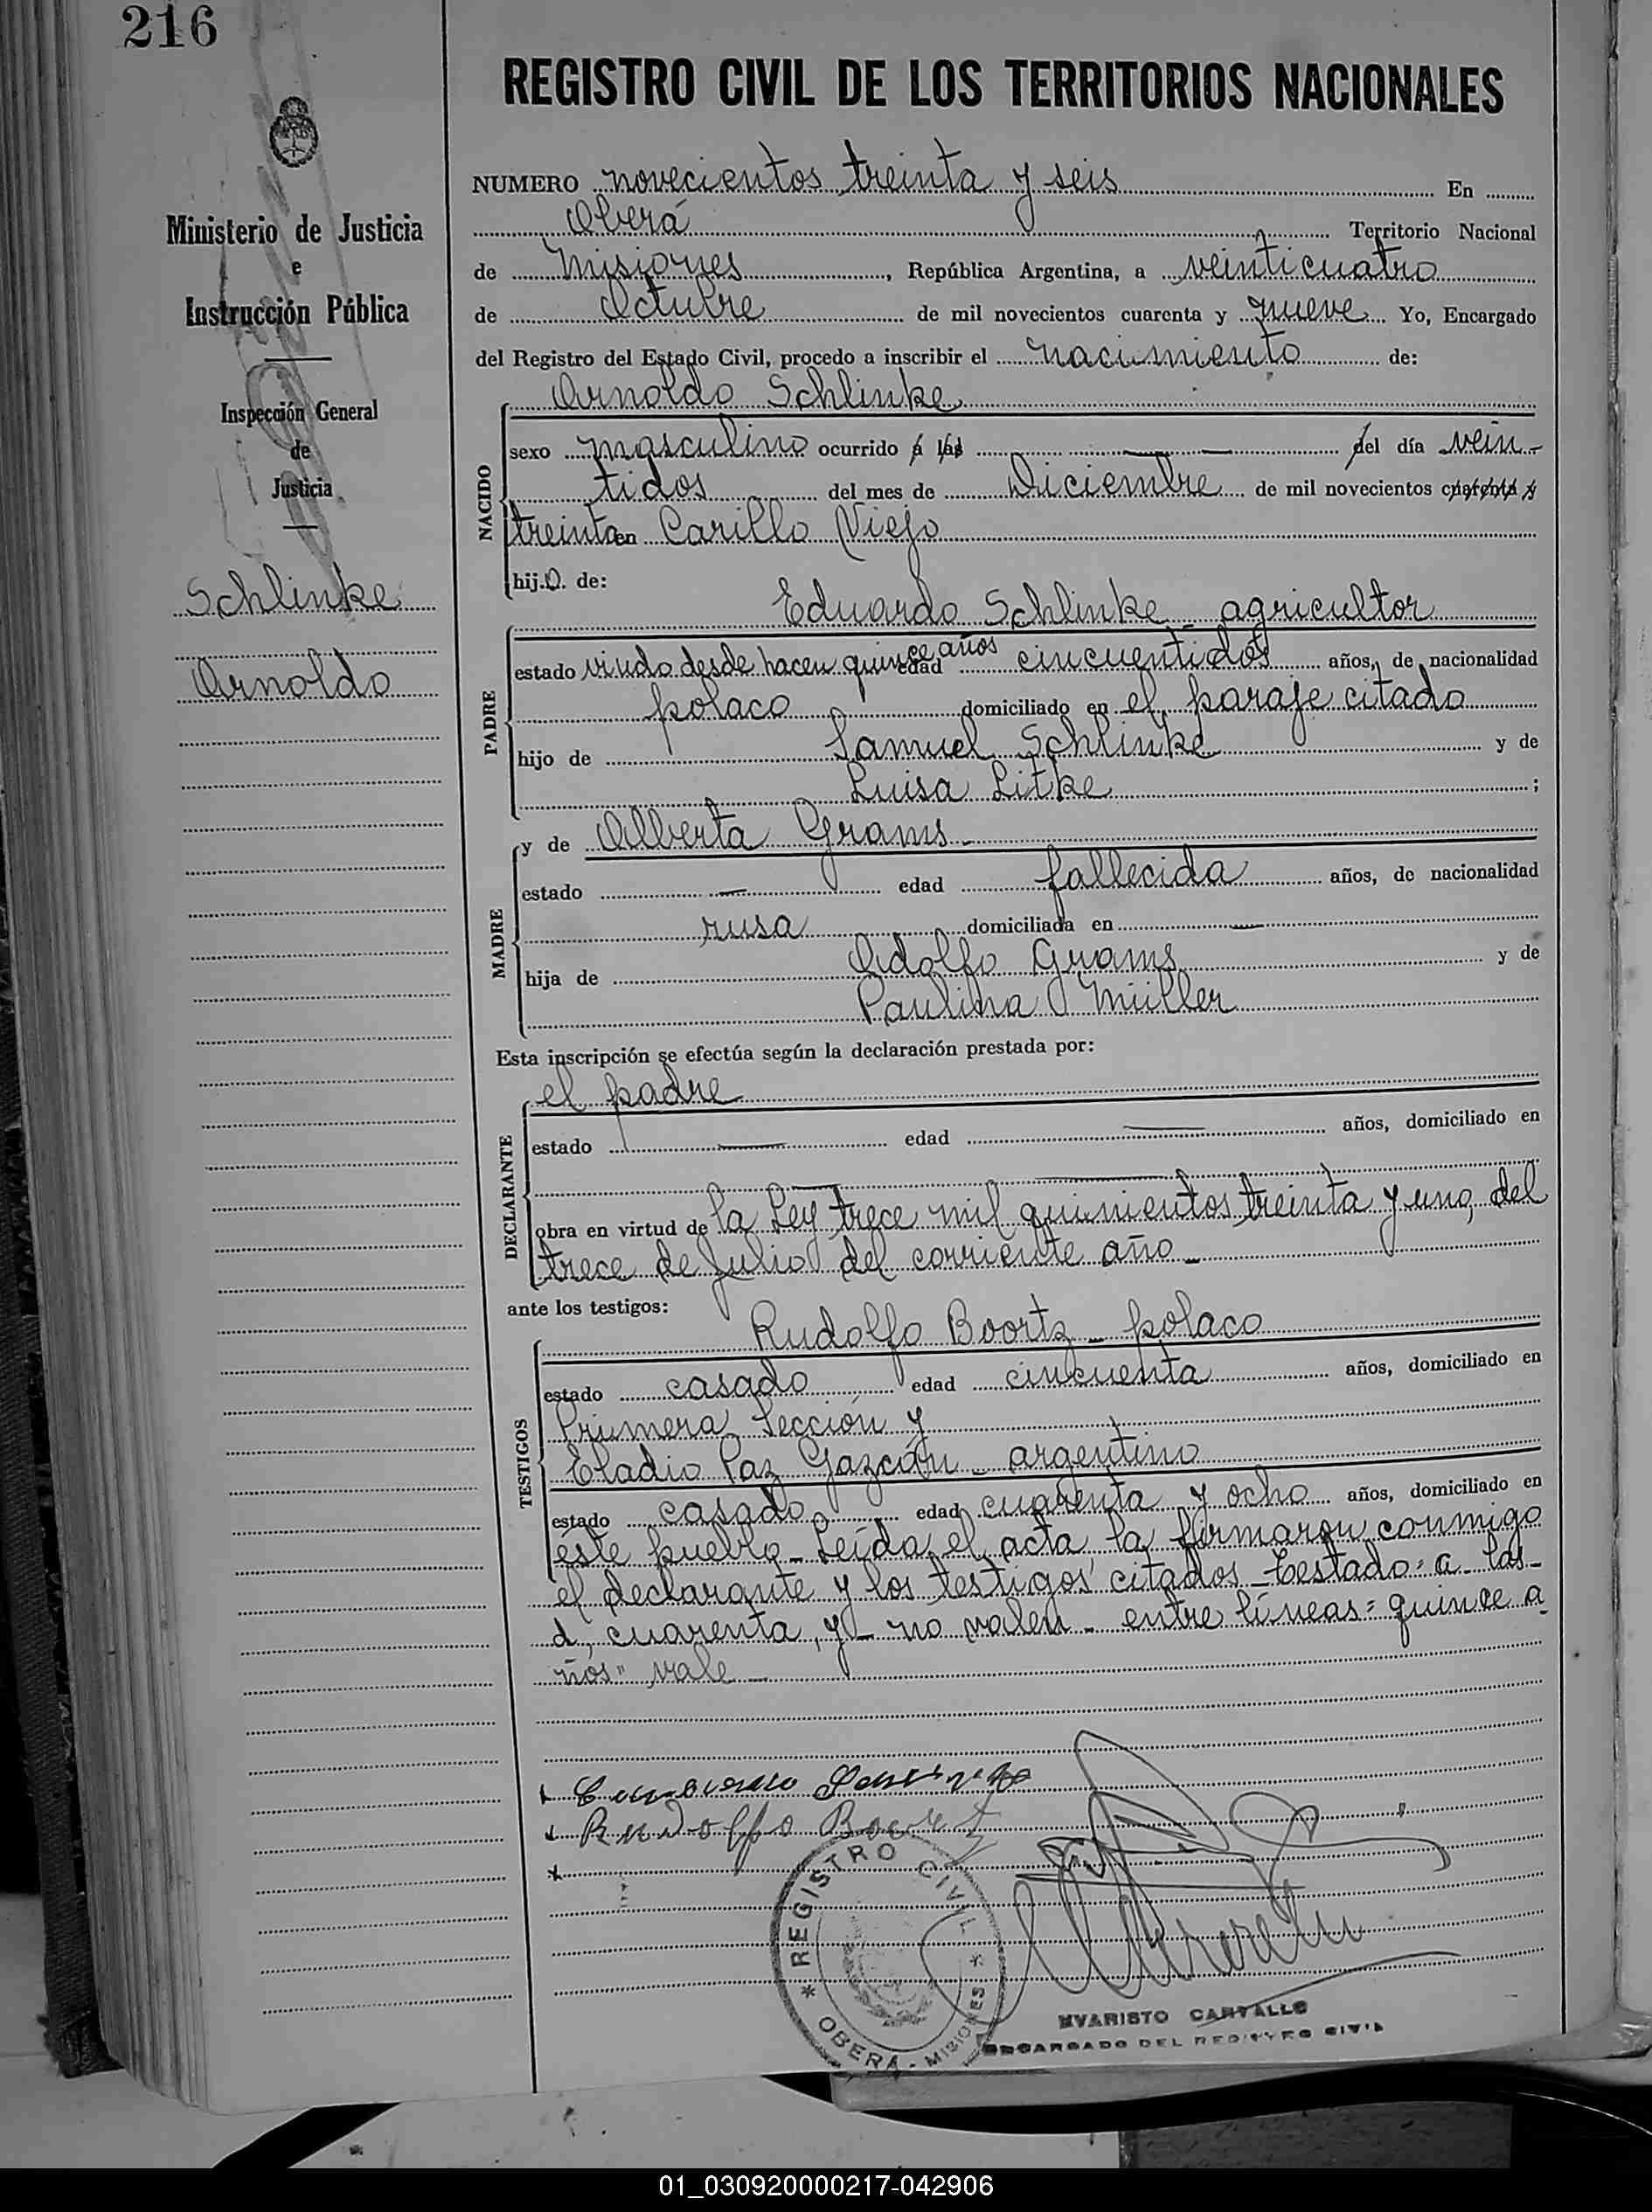 216
REGISTRO CIVIL DE LOS TERRITORIOS NACIONALES
Ministerio de Justicia
e
Instrucción Pública
Inspección General
de
Justicia
Schlinke
Arnoldo
NUMERO novecientos treinta y seis En
Oberá Territorio Nacional
de Misiones, República Argentina, a veinticuatro
de Octubre de mil novecientos cuarenta y nueve Yo, Encargado
del Registro del Estado Civil, procedo a inscribir el nacimiento de:
NACIDO
Arnoldo Schlinke
sexo masculino ocurrido a las del día vein-
tidos del mes de Diciembre de mil novecientos cuarenta y
treinta en Carillo Viejo
hijo de:
PADRE
Eduardo Schlinke - agricultor
estado viudo desde hacen quince años edad cincuentidos años, de nacionalidad
polaco domiciliado en el paraje citado
hijo de Samuel Schlinke y de
Luisa Litke;
MADRE
y de Alberta Grams -
estado — edad fallecida años, de nacionalidad
rusa domiciliada en —
hija de Adolfo Grams y de
Paulina Müller
Esta inscripción se efectúa según la declaración prestada por:
DECLARANTE
el padre
estado — edad — años, domiciliado en
obra en virtud de la Ley trece mil quinientos treinta y uno, del
trece de Julio del corriente año -
ante los testigos:
TESTIGOS
Rudolfo Boortz - polaco
estado casado edad cincuenta años, domiciliado en
Primera Sección y
Eladio Paz Gazcón - argentino
estado casado edad cuarenta y ocho años, domiciliado en
éste pueblo - Leída el acta la firmaron conmigo
el declarante y los testigos citados - Testado: a - las -
d, cuarenta, y - no valen - entre líneas = quince a
ños" vale -
Rudolfo Boortz
REGISTRO CIVIL
OBERA - MISIONES
EVARISTO CARVALLO
ENCARGADO DEL REGISTRO CIVIL
01_030920000217-042906